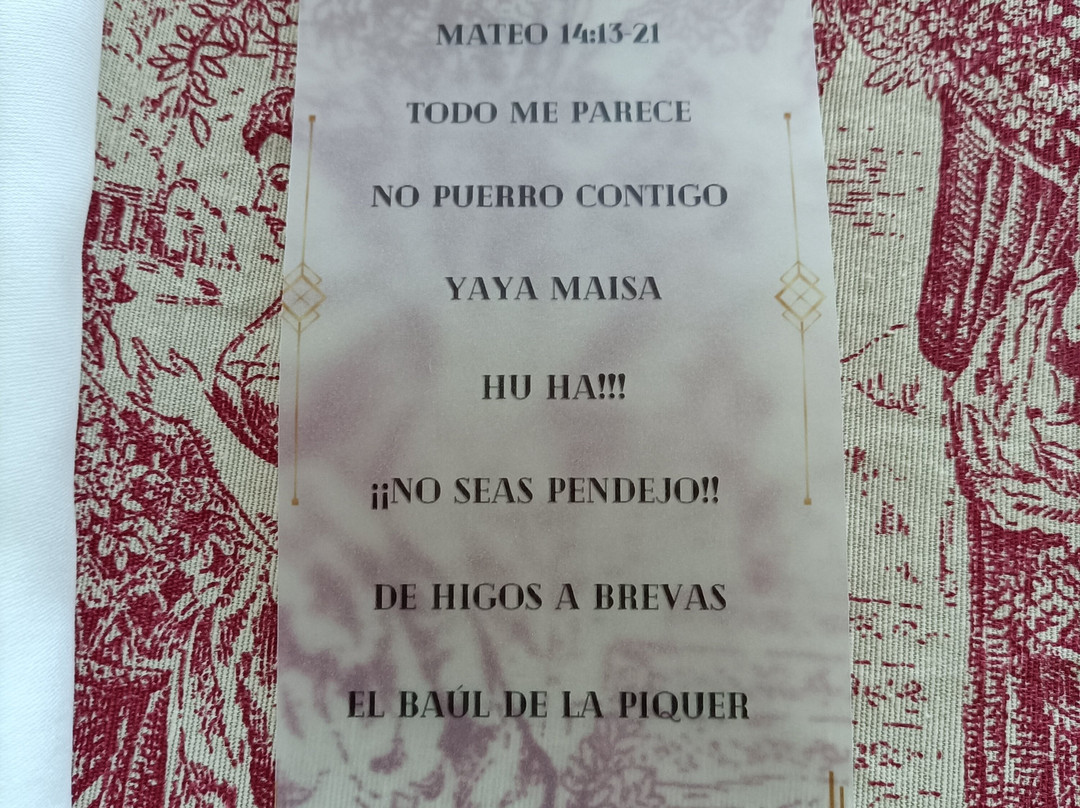 MATEO 14:13-21
TODO ME PARECE
NO PUERRO CONTIGO
YAYA MAISA
HU HA!!!
¡¡NO SEAS PENDEJO!!
DE HIGOS A BREVAS
EL BAÚL DE LA PIQUER